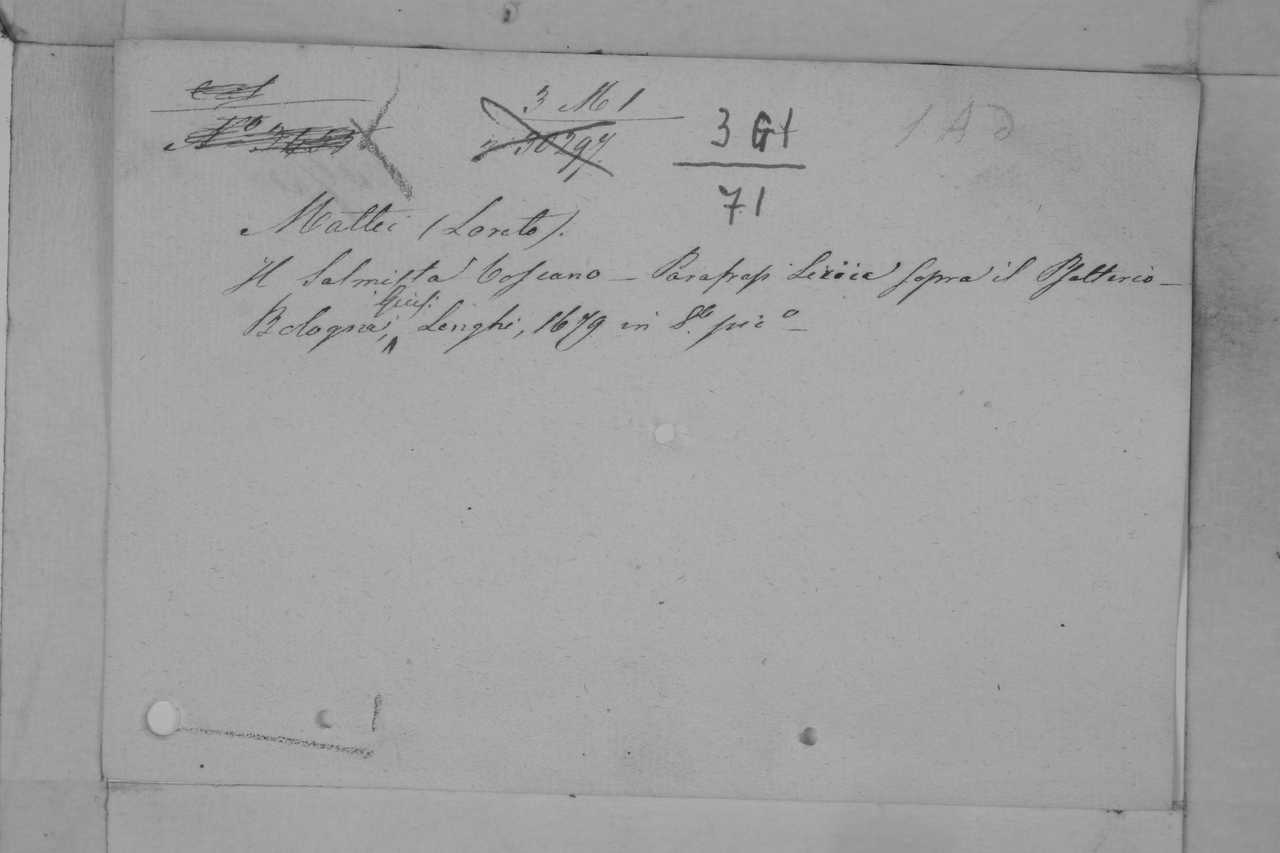 3 M 1
n 30297.
3 G1
71
1 A
Mattei (Loreto).
Il Salmista Toscano — Parafrasi Lirica sopra il Psalterio —
Bologna, Gius: Longhi, 1679 in 8.º pic.º —
1